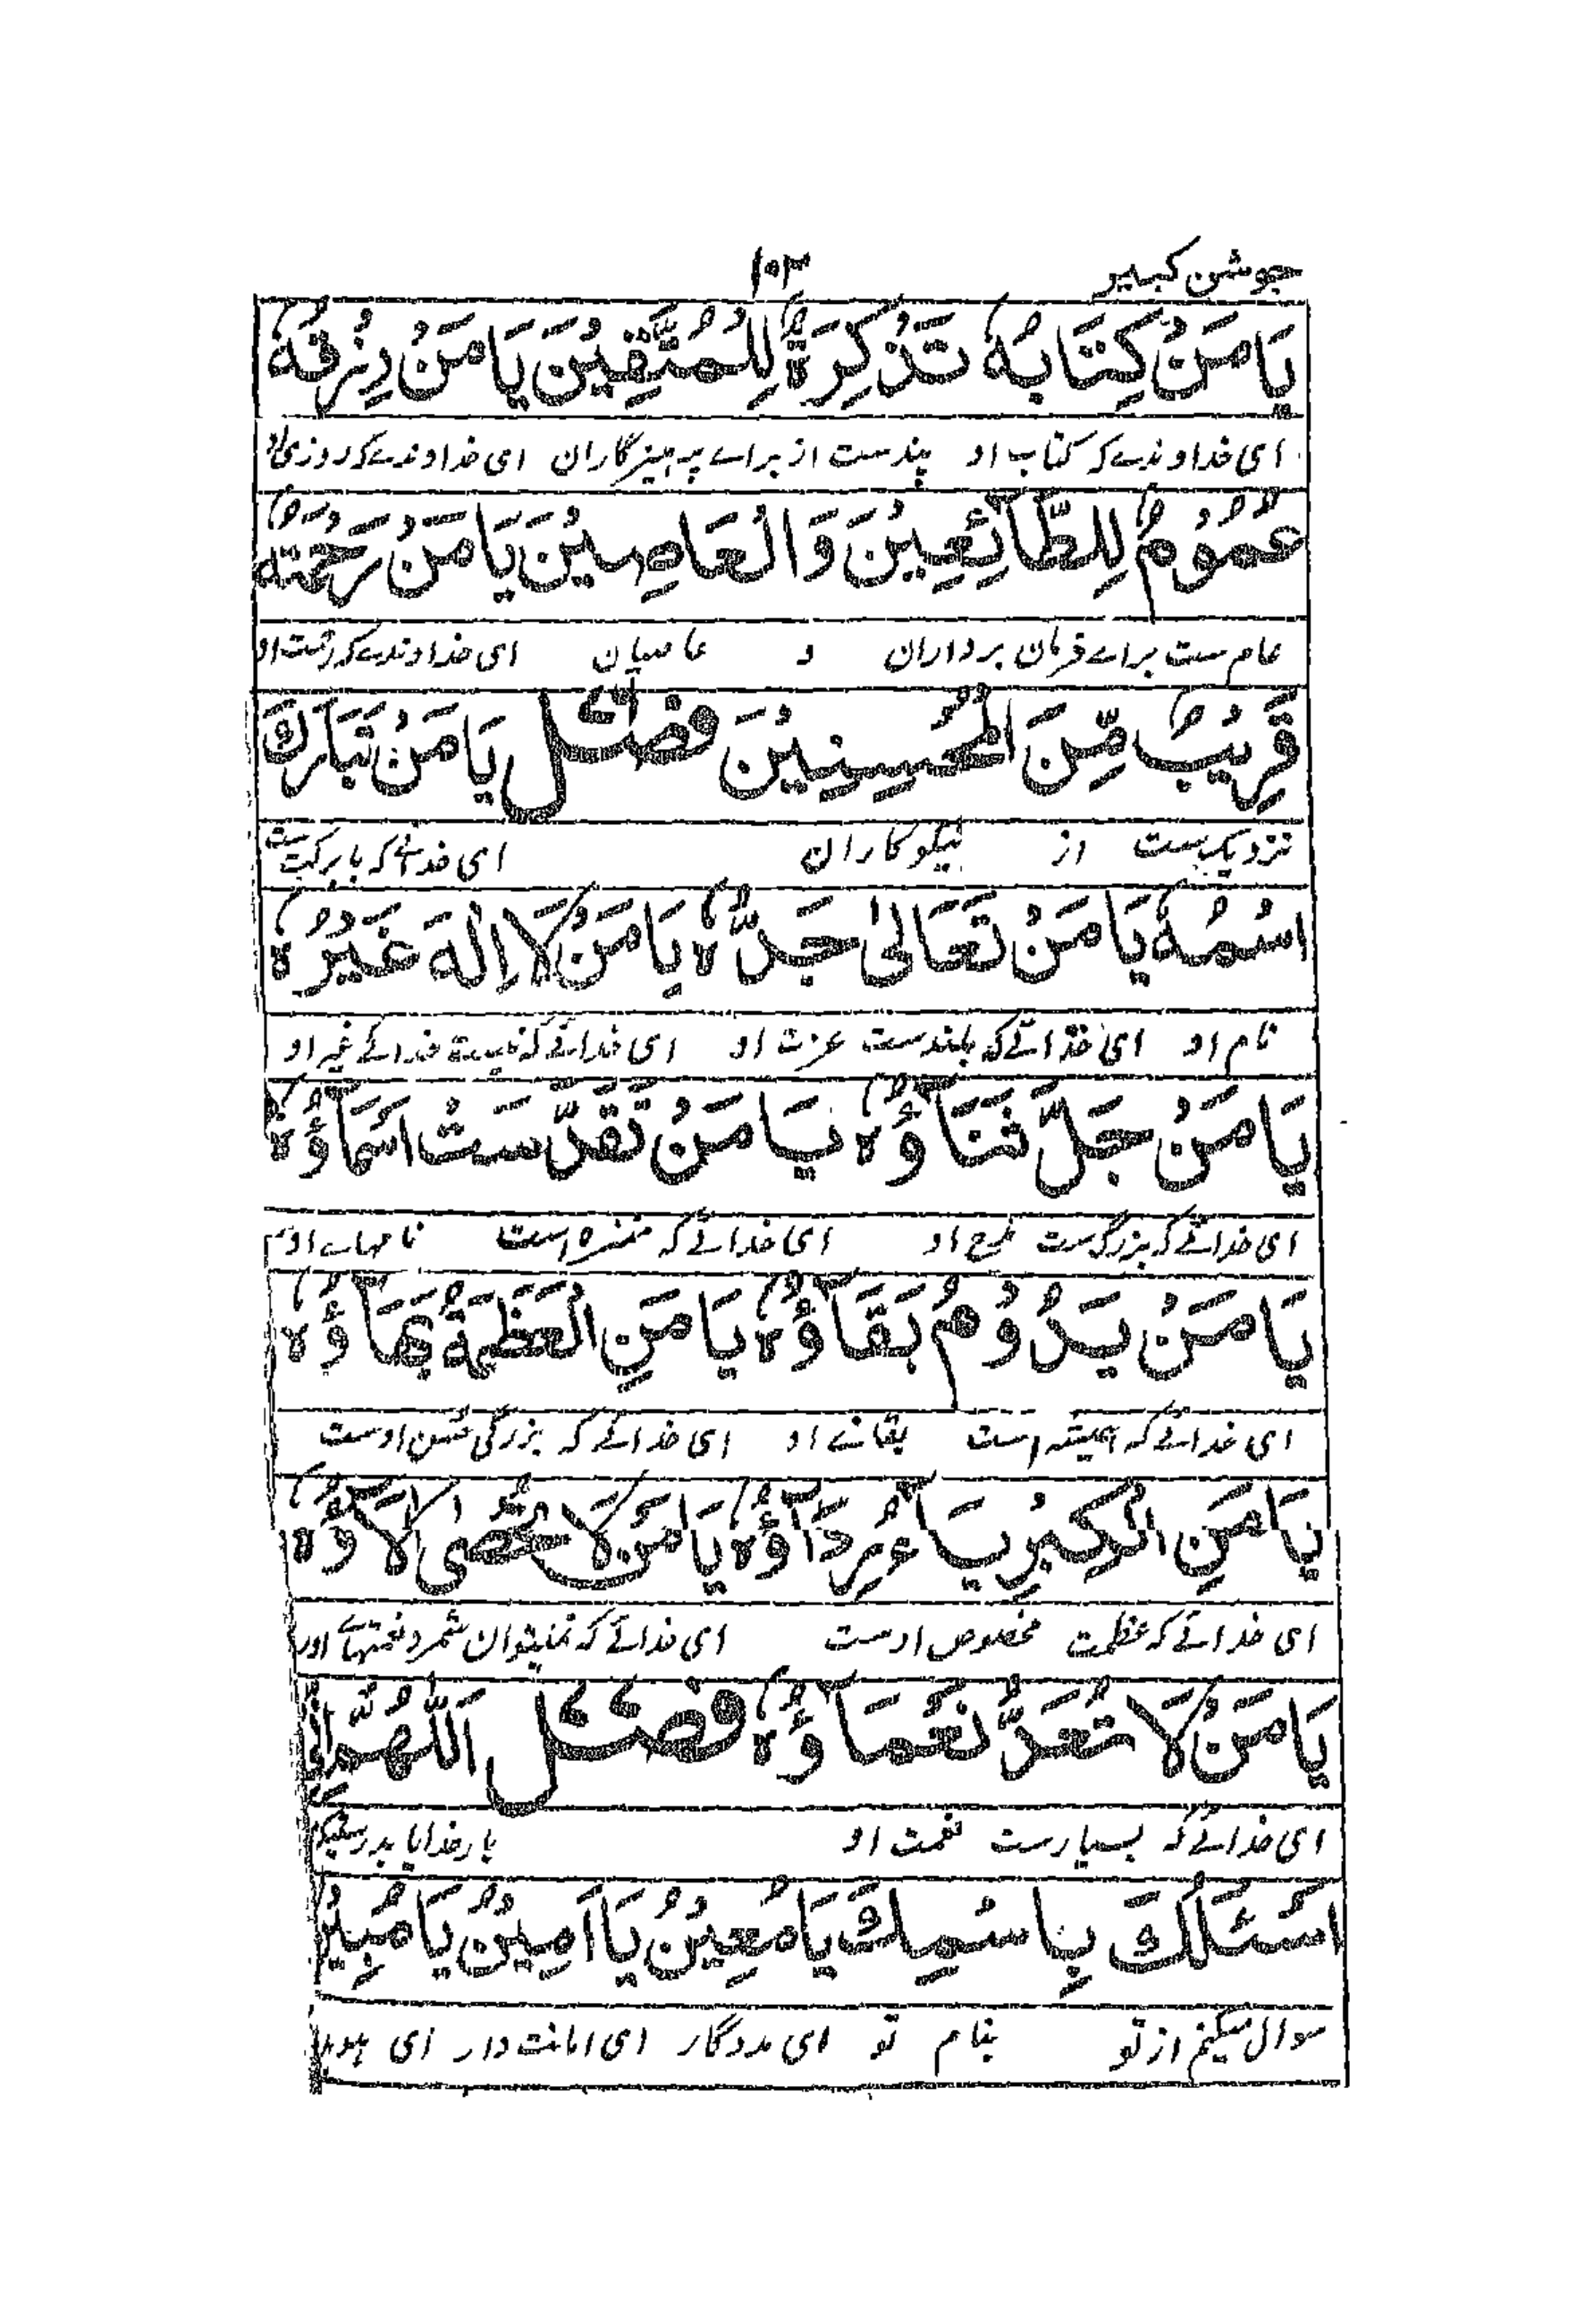 جوشن کبیر ۱۰۳
يَا مَنْ كِتَابُهُ تَذْكِرَةٌ لِلْمُتَّقِيْنَ يَا مَنْ رِزْقُهُ
ای خداوندے که کتاب او پندست از براے پرهیزگاران ای خداوندے که روزی او
عُمُوْمٌ لِلطَّائِعِيْنَ وَالْعَاصِيْنَ يَا مَنْ رَحْمَتُهُ
عام ست براے فرمان برداران و عاصیان ای خداوندے که رحمت او
قَرِيْبٌ مِّنَ الْمُحْسِنِيْنَ فصل يَا مَنْ تَبَارَكَ
نزدیک ست از نیکوکاران ای خدائے که بابرکت ست
اسْمُهُ يَا مَنْ تَعَالىٰ جَدُّهُ يَا مَنْ لَا اِلٰهَ غَيْرُهُ
نام او ای خدائے که بلندست عزت او ای خدائے که نیست خدائے غیر او
يَا مَنْ جَلَّ ثَنَاؤُهُ يَا مَنْ تَقَدَّسَتْ اَسْمَاؤُهُ
ای خدائے که بزرگ ست مدح او ای خدائے که منزه است نامهاے او
يَا مَنْ يَدُوْمُ بَقَاؤُهُ يَا مَنِ الْعَظَمَةُ بَهَاؤُهُ
ای خدائے که همیشه است بقائے او ای خدائے که بزرگی حسن اوست
يَا مَنِ الْكِبْرِيَاءُ رِدَاؤُهُ يَا مَنْ لَا تُحْصٰى اٰلَاؤُهُ
ای خدائے که عظمت مخصوص اوست ای خدائے که نمیتوان شمرد نعمتهاے اورا
يَا مَنْ لَا تُعَدُّ نَعْمَاؤُهُ فصل اَللّٰهُمَّ اِنِّي
ای خدائے که بسیارست نعمت او بارخدایا بدرستیکه
اَسْئَلُكَ بِاسْمِكَ يَا مُعِيْنُ يَا اَمِيْنُ يَا مُبِيْنُ
سوال میکنم از تو بنام تو ای مددگار ای امانت دار ای